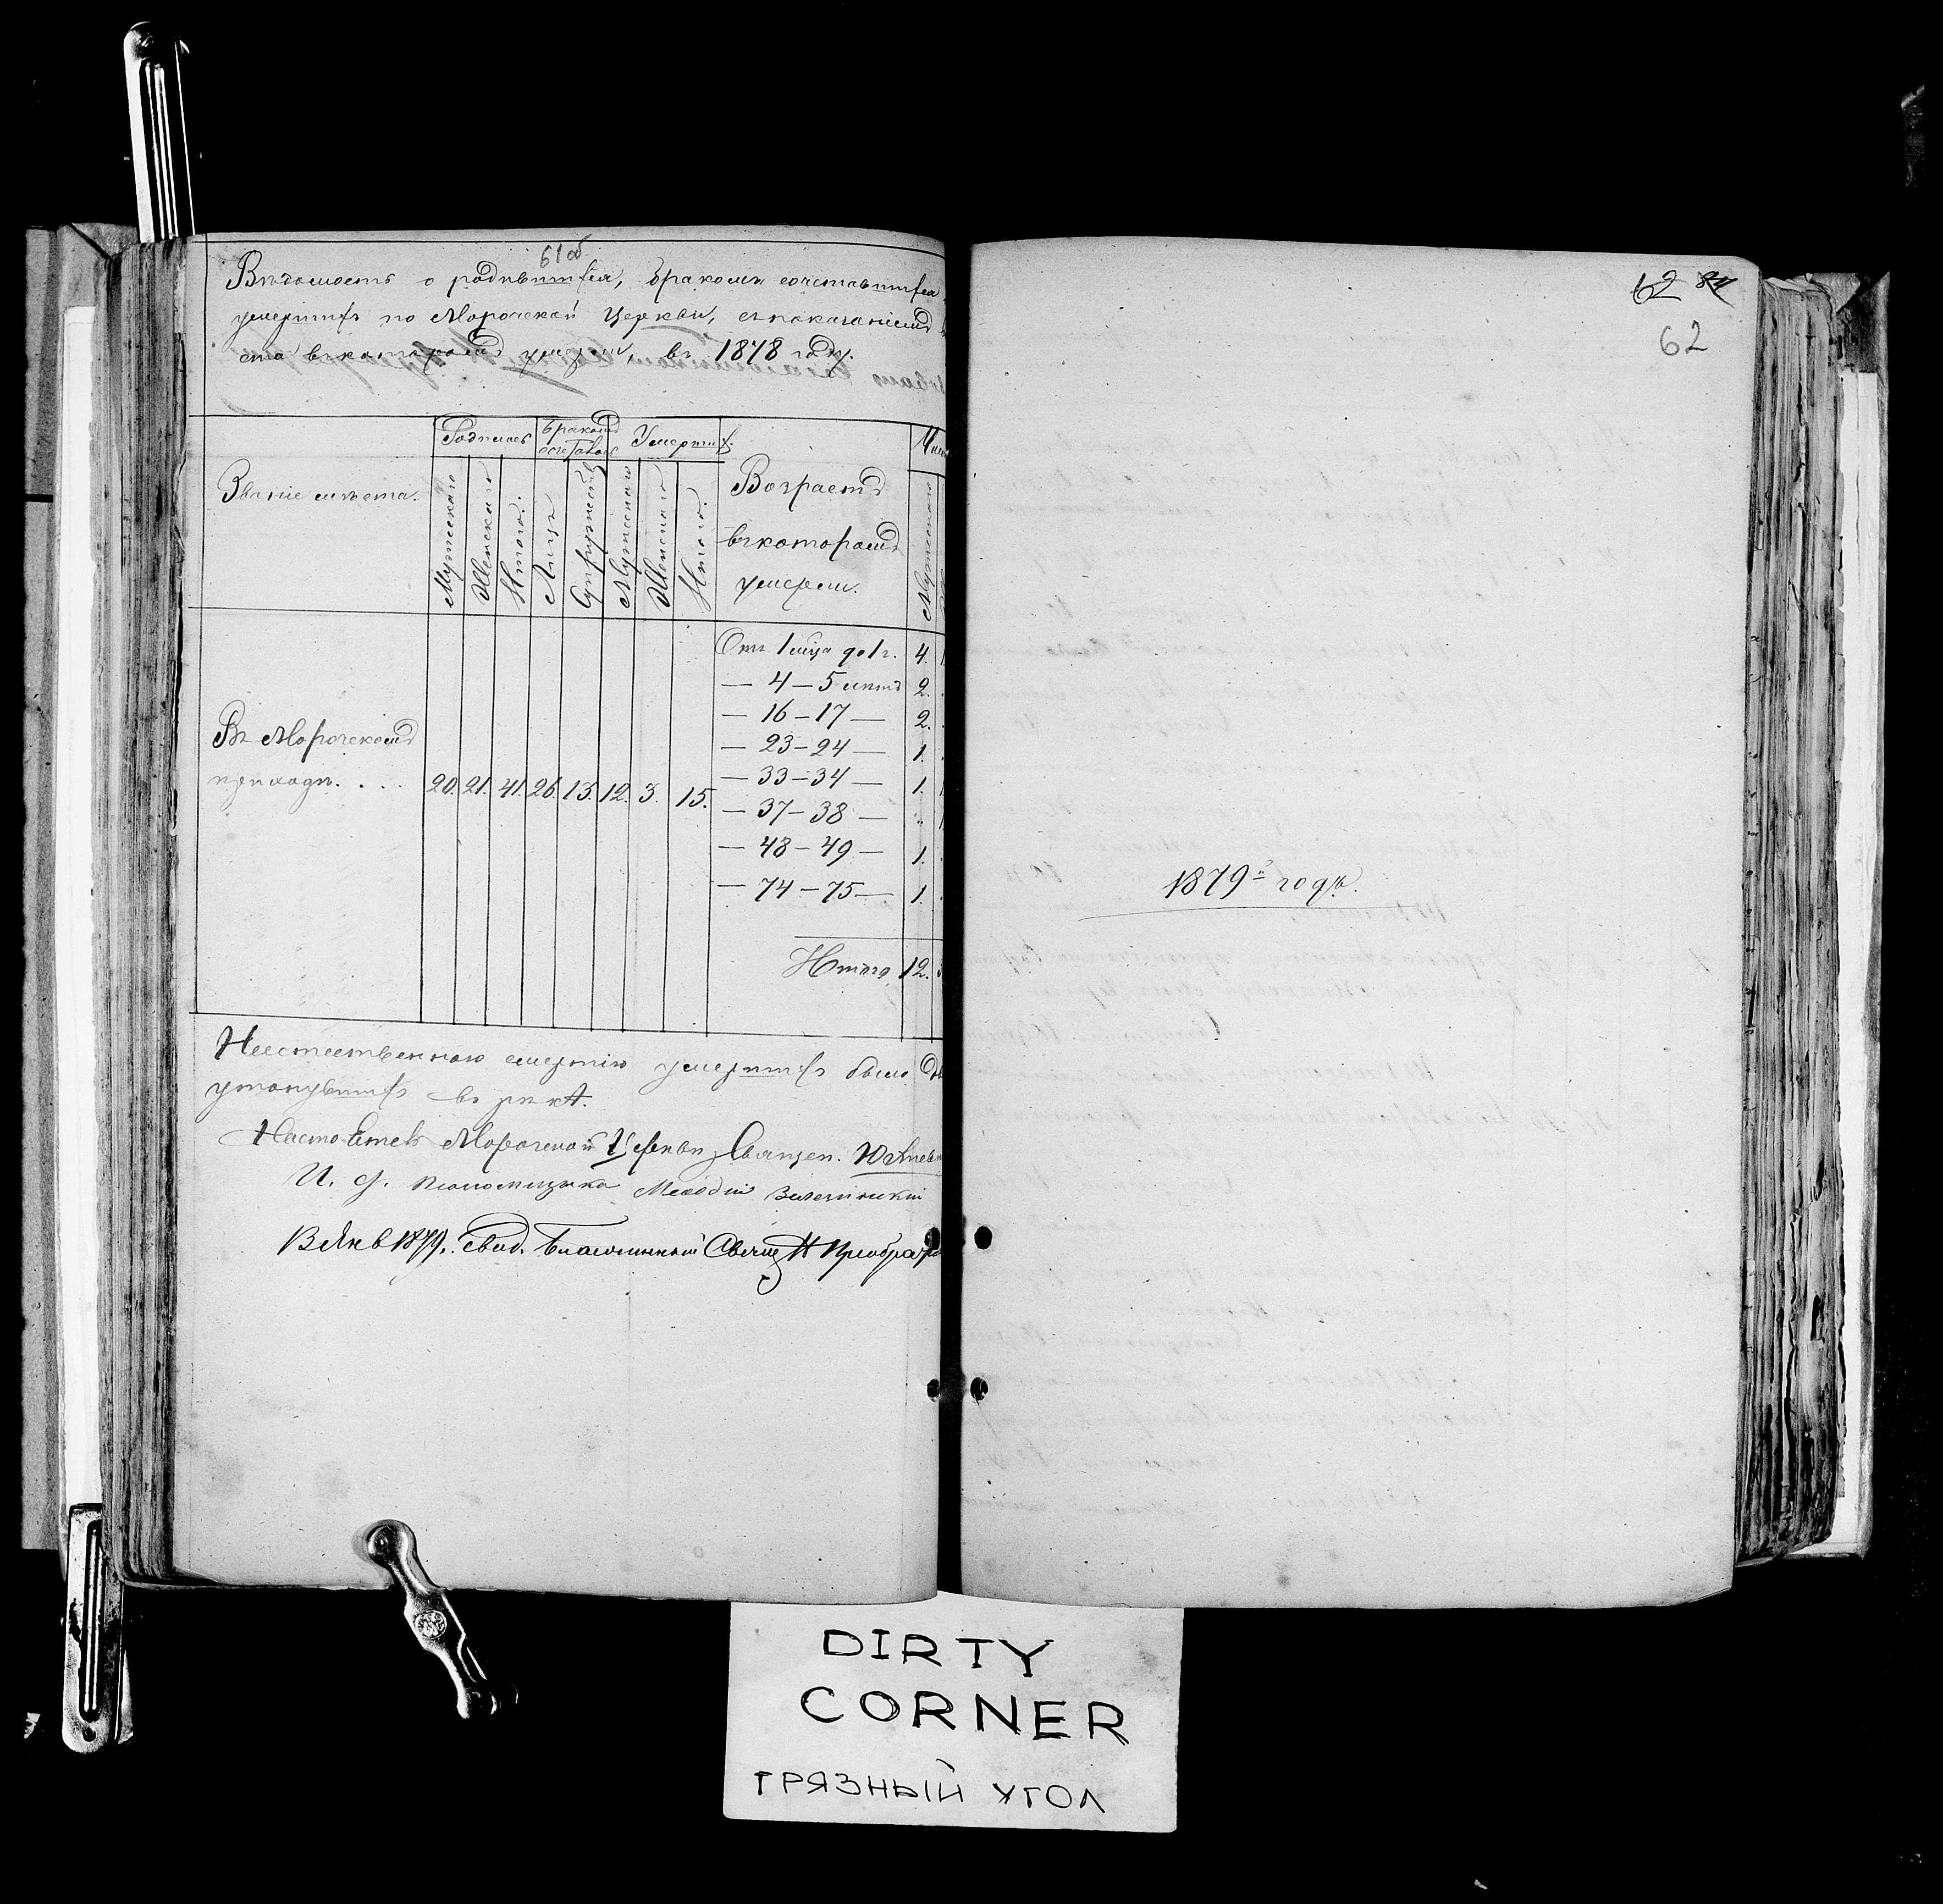 61 об
Вѣдомость о родившихся, бракомъ сочетавшихся
умершихъ по Морочской Церкви, съ показаніемъ
въ которомъ умерли, въ 1878 году.
Родилось Бракомъ сочеталось Умершихъ Число
Званіе мѣста. Мужескаго Женскаго Итого. Лицъ Супружествъ Мужескаго Женскаго Итого. Возрастъ въ которомъ умерли. Мужескаго
Отъ 1 мѣся до 1 г. 4.
— 4 — 5 лѣтъ 2.
— 16 — 17 — 2.
Въ Морочскомъ — 23 — 24 — 1.
приходѣ. . . . 20. 21. 41. 26. 13. 12. 3. 15. — 33 — 34 — 1.
— 37 — 38 — „
— 48 — 49 — 1.
— 74 — 75 — 1.
Итого 12. 3
Неестественною смертію умершихъ было
утонувшихъ въ рѣкѣ.
Настоятель Морочской Церкви Священ.
И. д. псаломщика Меѳодій
В Янв 1879. Свид. Благочинный Свящ Н Преображе
62 84
62
1879й годъ.
DIRTY
CORNER
ГРЯЗНЫЙ УГОЛ